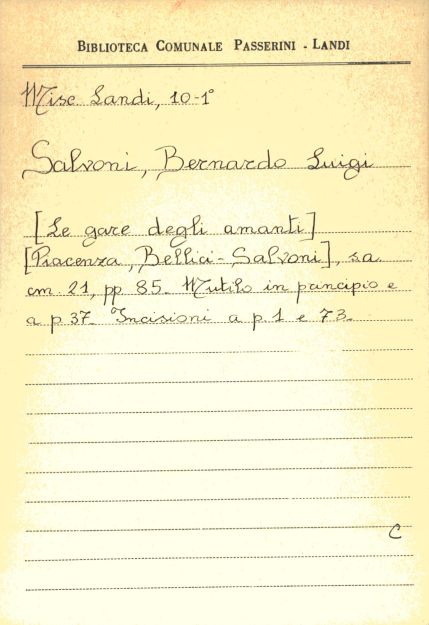 BIBLIOTECA COMUNALE PASSERINI - LANDI
Misc Landi, 10-1°
Salvoni, Bernardo Luigi
[Le gare degli amanti]
[Piacenza, Bellici-Salvoni], s.a.
cm. 21, pp. 85. Mutilo in principio e
a p. 37. Incisioni a p. 1 e 73.
C